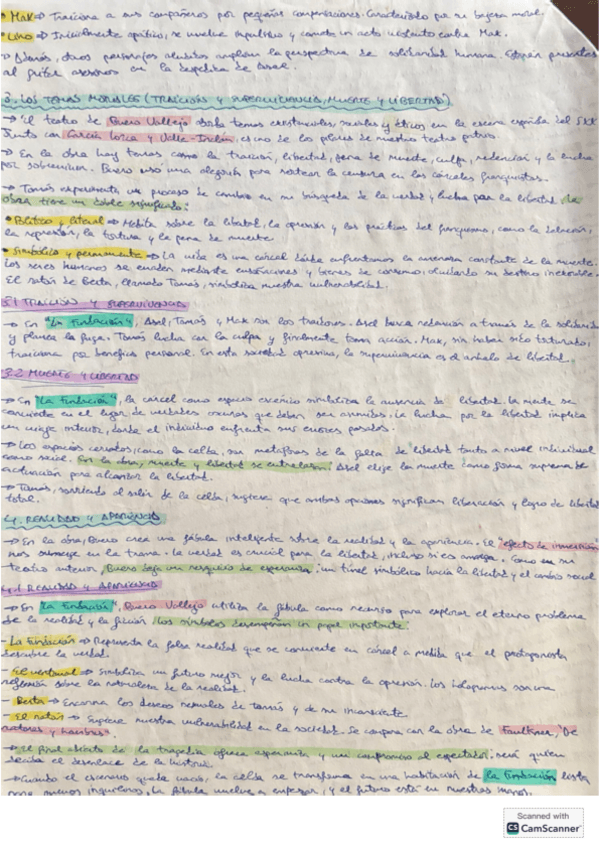 • Max → Traiciona a sus compañeros por pequeñas compensaciones. Caracterizado por su bajeza moral.
• Lino → Inicialmente apático, se vuelve impulsivo y comete un acto violento contra Max.
→ Además, otros personajes aludidos amplían la perspectiva de solidaridad humana. Estarán presentes
al gritar asesinos en la despedida de Asel.
3. LOS TEMAS MORALES (TRAICIÓN Y SUPERVIVENCIA, MUERTE Y LIBERTAD).
→ El teatro de Buero Vallejo aborda temas existenciales, sociales y éticos en la escena española del S.XX
Junto con García Lorca y Valle-Inclán, es uno de los pilares de nuestro teatro
→ En la obra hay temas como la traición, libertad, pena de muerte, culpa, redención y la lucha
por sobrevivir. Buero usó una alegoría para sortear la censura en las cárceles franquistas.
→ Tomás experimenta un proceso de cambio en su búsqueda de la verdad y lucha por la libertad. La
obra tiene un doble significado:
• Político y literal → Medita sobre la libertad, la opresión y las prácticas del franquismo, como la delación,
la represión, la tortura y la pena de muerte.
• Simbólico y permanente → La vida es una cárcel donde enfrentamos la amenaza constante de la muerte.
Los seres humanos se evaden mediante ensoñaciones y bienes de consumo, olvidando su destino inexorable.
El ratón de Berta, llamado Tomás, simboliza nuestra vulnerabilidad.
3.1 TRAICIÓN Y SUPERVIVENCIA
→ En "La Fundación", Asel, Tomás y Max son los traidores. Asel busca redención a través de la solidaridad
y planea la fuga. Tomás lucha con la culpa y finalmente toma acción. Max, sin haber sido torturado,
traiciona por beneficio personal. En esta sociedad opresiva, la supervivencia es el anhelo de libertad.
3.2 MUERTE Y LIBERTAD
→ En "La Fundación", la cárcel como espacio escénico simboliza la ausencia de libertad. La mente se
convierte en el lugar de verdades oscuras que deben ser asumidas. La lucha por la libertad implica
un viaje interior, donde el individuo enfrenta sus errores pasados.
→ Los espacios cerrados, como la celda, son metáforas de la falta de libertad tanto a nivel individual
como social. En la obra, muerte y libertad se entrelazan: Asel elige la muerte como forma suprema de
actuación para alcanzar la libertad.
→ Tomás, sonriendo al salir de la celda, sugiere que ambas opciones significan liberación y logro de libertad
total.
4. REALIDAD Y APARIENCIA
→ En la obra, Buero crea una fábula inteligente sobre la realidad y la apariencia. El "efecto de inmersión"
nos sumerge en la trama. La verdad es crucial para la libertad, incluso si es amarga. Como en su
teatro anterior, Buero deja un resquicio de esperanza: un túnel simbólico hacia la libertad y el cambio social
4.1 REALIDAD Y APARIENCIA
→ En "La Fundación", Buero Vallejo utiliza la fábula como recurso para explorar el eterno problema
de la realidad y la ficción. Los símbolos desempeñan un papel importante:
- La Fundación → Representa la falsa realidad que se convierte en cárcel a medida que el protagonista
descubre la verdad.
- El ventanal → Simboliza un futuro mejor y la lucha contra la opresión. Los hologramas son una
reflexión sobre la naturaleza de la realidad.
- Berta → Encarna los deseos de Tomás y de su inconsciente
- El ratón → Sugiere nuestra vulnerabilidad en la sociedad. Se compara con la obra de Faulkner, "De
ratones y hombres".
→ El final abierto de la tragedia ofrece esperanza y un compromiso al espectador: será quien
decida el desenlace de la historia.
→ Cuando el escenario queda vacío, la celda se transforma en una habitación de la Fundación lista
para nuevos inquilinos. La fábula vuelve a empezar, y el futuro está en nuestras manos.
Scanned with
CS CamScanner